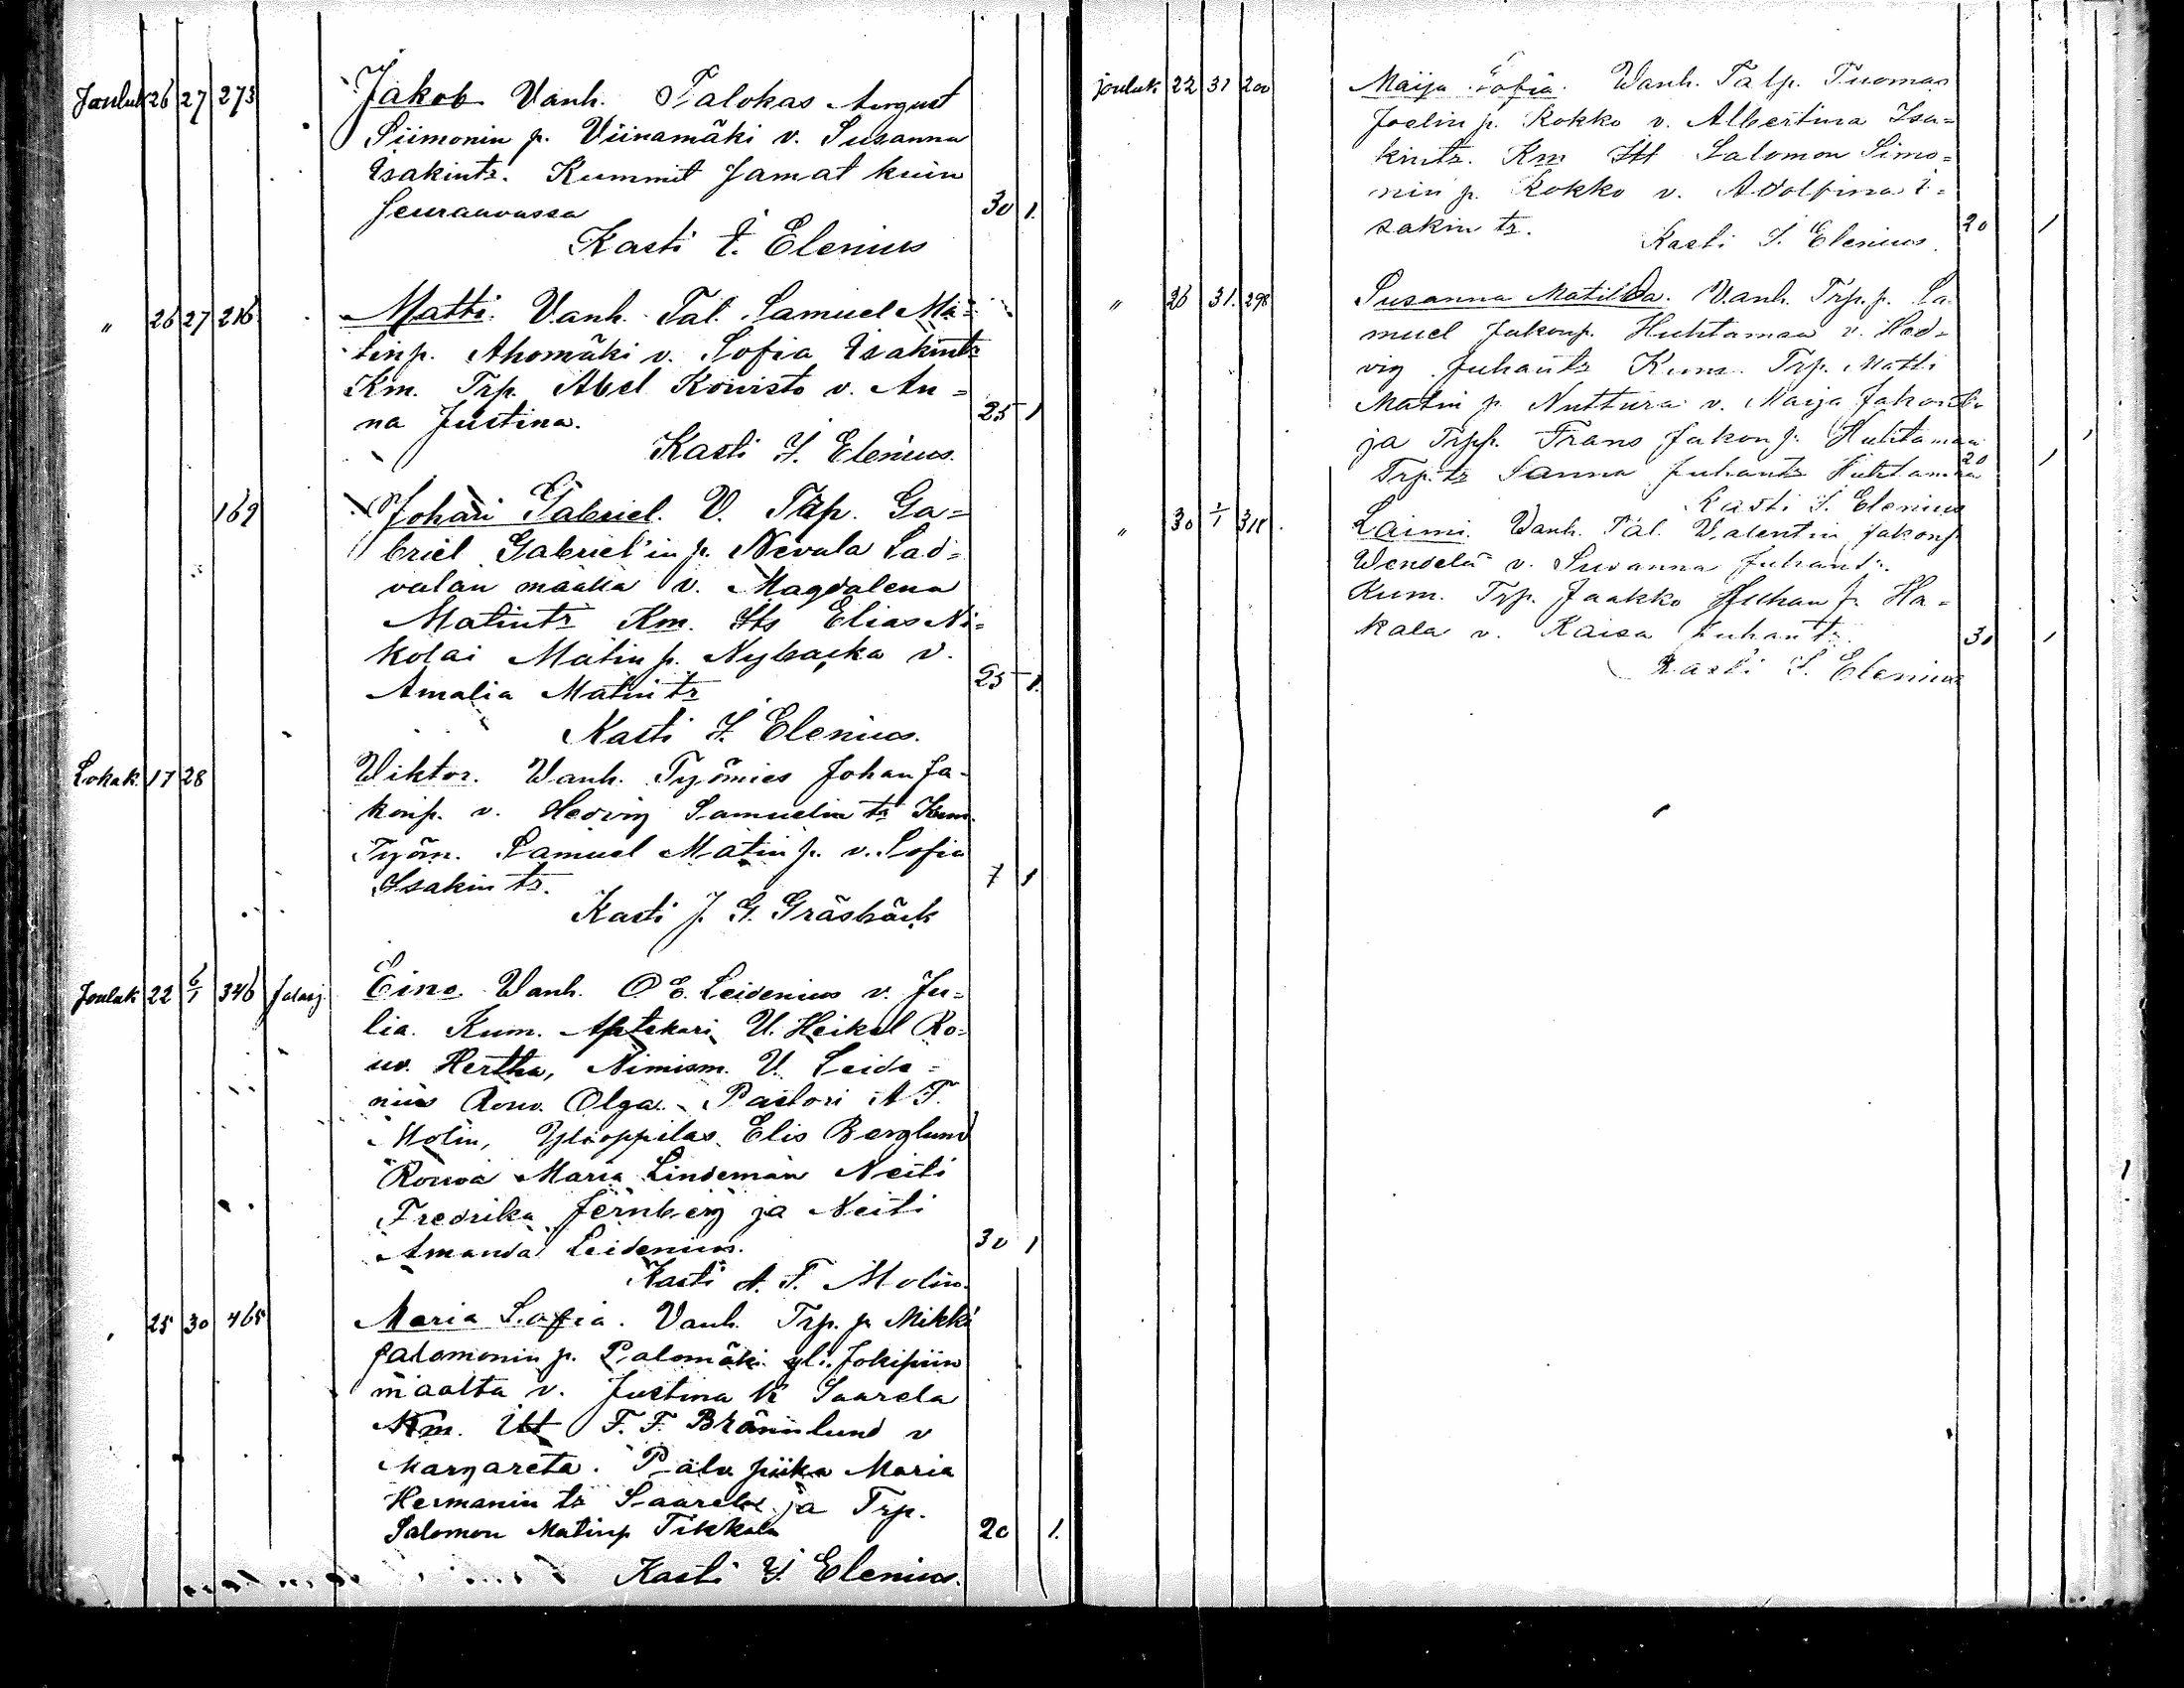 Jouluk 26 27 273 Jakob Vanh. Palokas August
Siimonin p. Viinamäki v. Susanna
Isakintr. Kummit Samat kuin
seuraavassa 30 1.
Kasti I. Elenius
" 26 27 216 Matti. Vanh. Tal. Samuel Ma=
tinp. Ahomäki v. Sofia Isakintr
Km. Trp. Abel Koivisto v. An=
na Justina. 25 1
Kasti I. Elenius.
169 Johan Gabriel. V. Trp. Ga=
briel Gabriel'in p. Nevala Lad=
valan maalla v. Magdalena
Matintr Km. Its Elias Ni=
kolai Matin p. Nybacka v.
Amalia Matintr 25 1.
Kasti I. Elenius.
Lokak. 17 28 Viktor. Vanh. Työmies Johan Ja-
konp. v. Hedvig Samuelin tr Kum.
Työm. Samuel Matin p. v. Sofia
Isakin tr. 7 1
Kasti J. G. Gräsbäck
Jouluk 22 6/1 346 Eino. Vanh. O. E. Leidenius v. Ju=
lia. Kum. Aptekari U. Heikel Ro=
uv. Hertha, Nimism. U. Leide=
nius Rouv. Olga. Pastori A F.
Molin, Ylioppilas Elis Berglund
Rouva Maria Lindeman Neiti
Fredrika Jernberg ja Neiti
Amanda Leidenius. 30 1
Kasti A. F. Molin.
, 25 30 465 Maria Sofia. Vanh. Trp. p. Mikki
Salomonin p. Palomäki yli. Jokipiin
maalta v. Justina K Saarela
Km. Itt F. F. Brännlund v
Margareta. Palv. piika Maria
Hermanin tr Saarela ja Trp.
Salomon Matinp Tikkala 20 1.
Kasti I. Elenius.
jouluk 22 31 200 Maija Sofia. Vanh. Talp. Tuomas
Joelin p. Kokko v. Albertina Isa=
kintr. Km Itt Salomon Simo=
nin p. Kokko v. Adolfina I=
sakin tr. 20 1
Kasti I. Elenius.
" 26 31. 298 Susanna Matilda. Vanh. Trp. p. Sa
muel Jakonp. Huhtamaa v. Hed=
vig Juhantr Kum. Trp. Matti
Matin p. Nuttura v. Maija Jakontr
ja Trpp. Frans Jakon p. Huhtamaa
Trp. tr Sanna Juhantr Huhtamaa 20 1
Kasti I. Elenius
" 30 1/1 318 Laimi. Vanh. Tal. Valentin Jakonp
Wendelä v. Susanna Juhantr.
Kum. Trp. Jaakko Juhan p. Ha=
kala v. Kaisa Juhantr. 30 1
Kasti I. Elenius